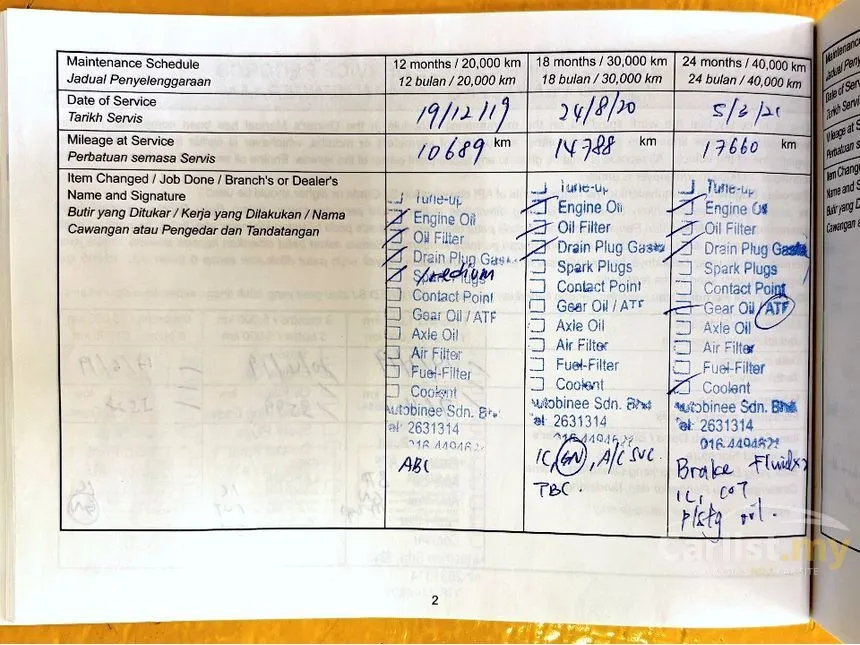 Maintenance Schedule
Jadual Penyelenggaraan
12 months / 20,000 km
12 bulan / 20,000 km
18 months / 30,000 km
18 bulan / 30,000 km
24 months / 40,000 km
24 bulan / 40,000 km
Date of Service
Tarikh Servis
19/12/19
24/8/20
5/3/21
Mileage at Service
Perbatuan semasa Servis
10689 km
14788 km
17660 km
Item Changed / Job Done / Branch's or Dealer's
Name and Signature
Butir yang Ditukar / Kerja yang Dilakukan / Nama
Cawangan atau Pengedar dan Tandatangan
Tune-up
Engine Oil
Oil Filter
Drain Plug
Spark Plugs
Contact Point
Gear Oil / ATF
Axle Oil
Air Filter
Fuel-Filter
Coolant
Autobinee Sdn. Bhd
Tel: 2631314
ABC
Tune-up
Engine Oil
Oil Filter
Drain Plug
Spark Plugs
Contact Point
Gear Oil / ATF
Axle Oil
Air Filter
Fuel-Filter
Coolant
Autobinee Sdn. Bhd
Tel: 2631314
IC, GN, A/C SVC.
TBC.
Tune-up
Engine Oil
Oil Filter
Drain Plug
Spark Plugs
Contact Point
Gear Oil / ATF
Axle Oil
Air Filter
Fuel-Filter
Coolant
Autobinee Sdn. Bhd
Tel: 2631314
Brake Fluid
IC,
oil.
2
Carlist.my